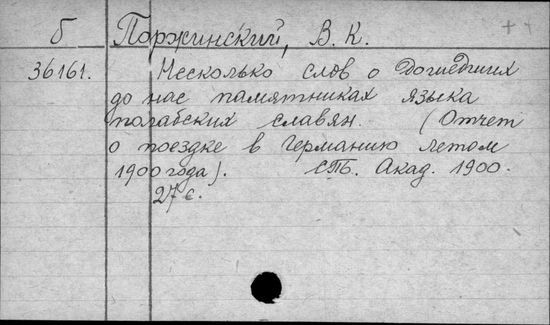 Б Поржинский, В. К.
36161. Несколько слов о дошедших
до нас памятниках языка
полабских славян. (Отчет
о поездке в Германию летом
1900 года). СПБ. Акад. 1900.
27 с.